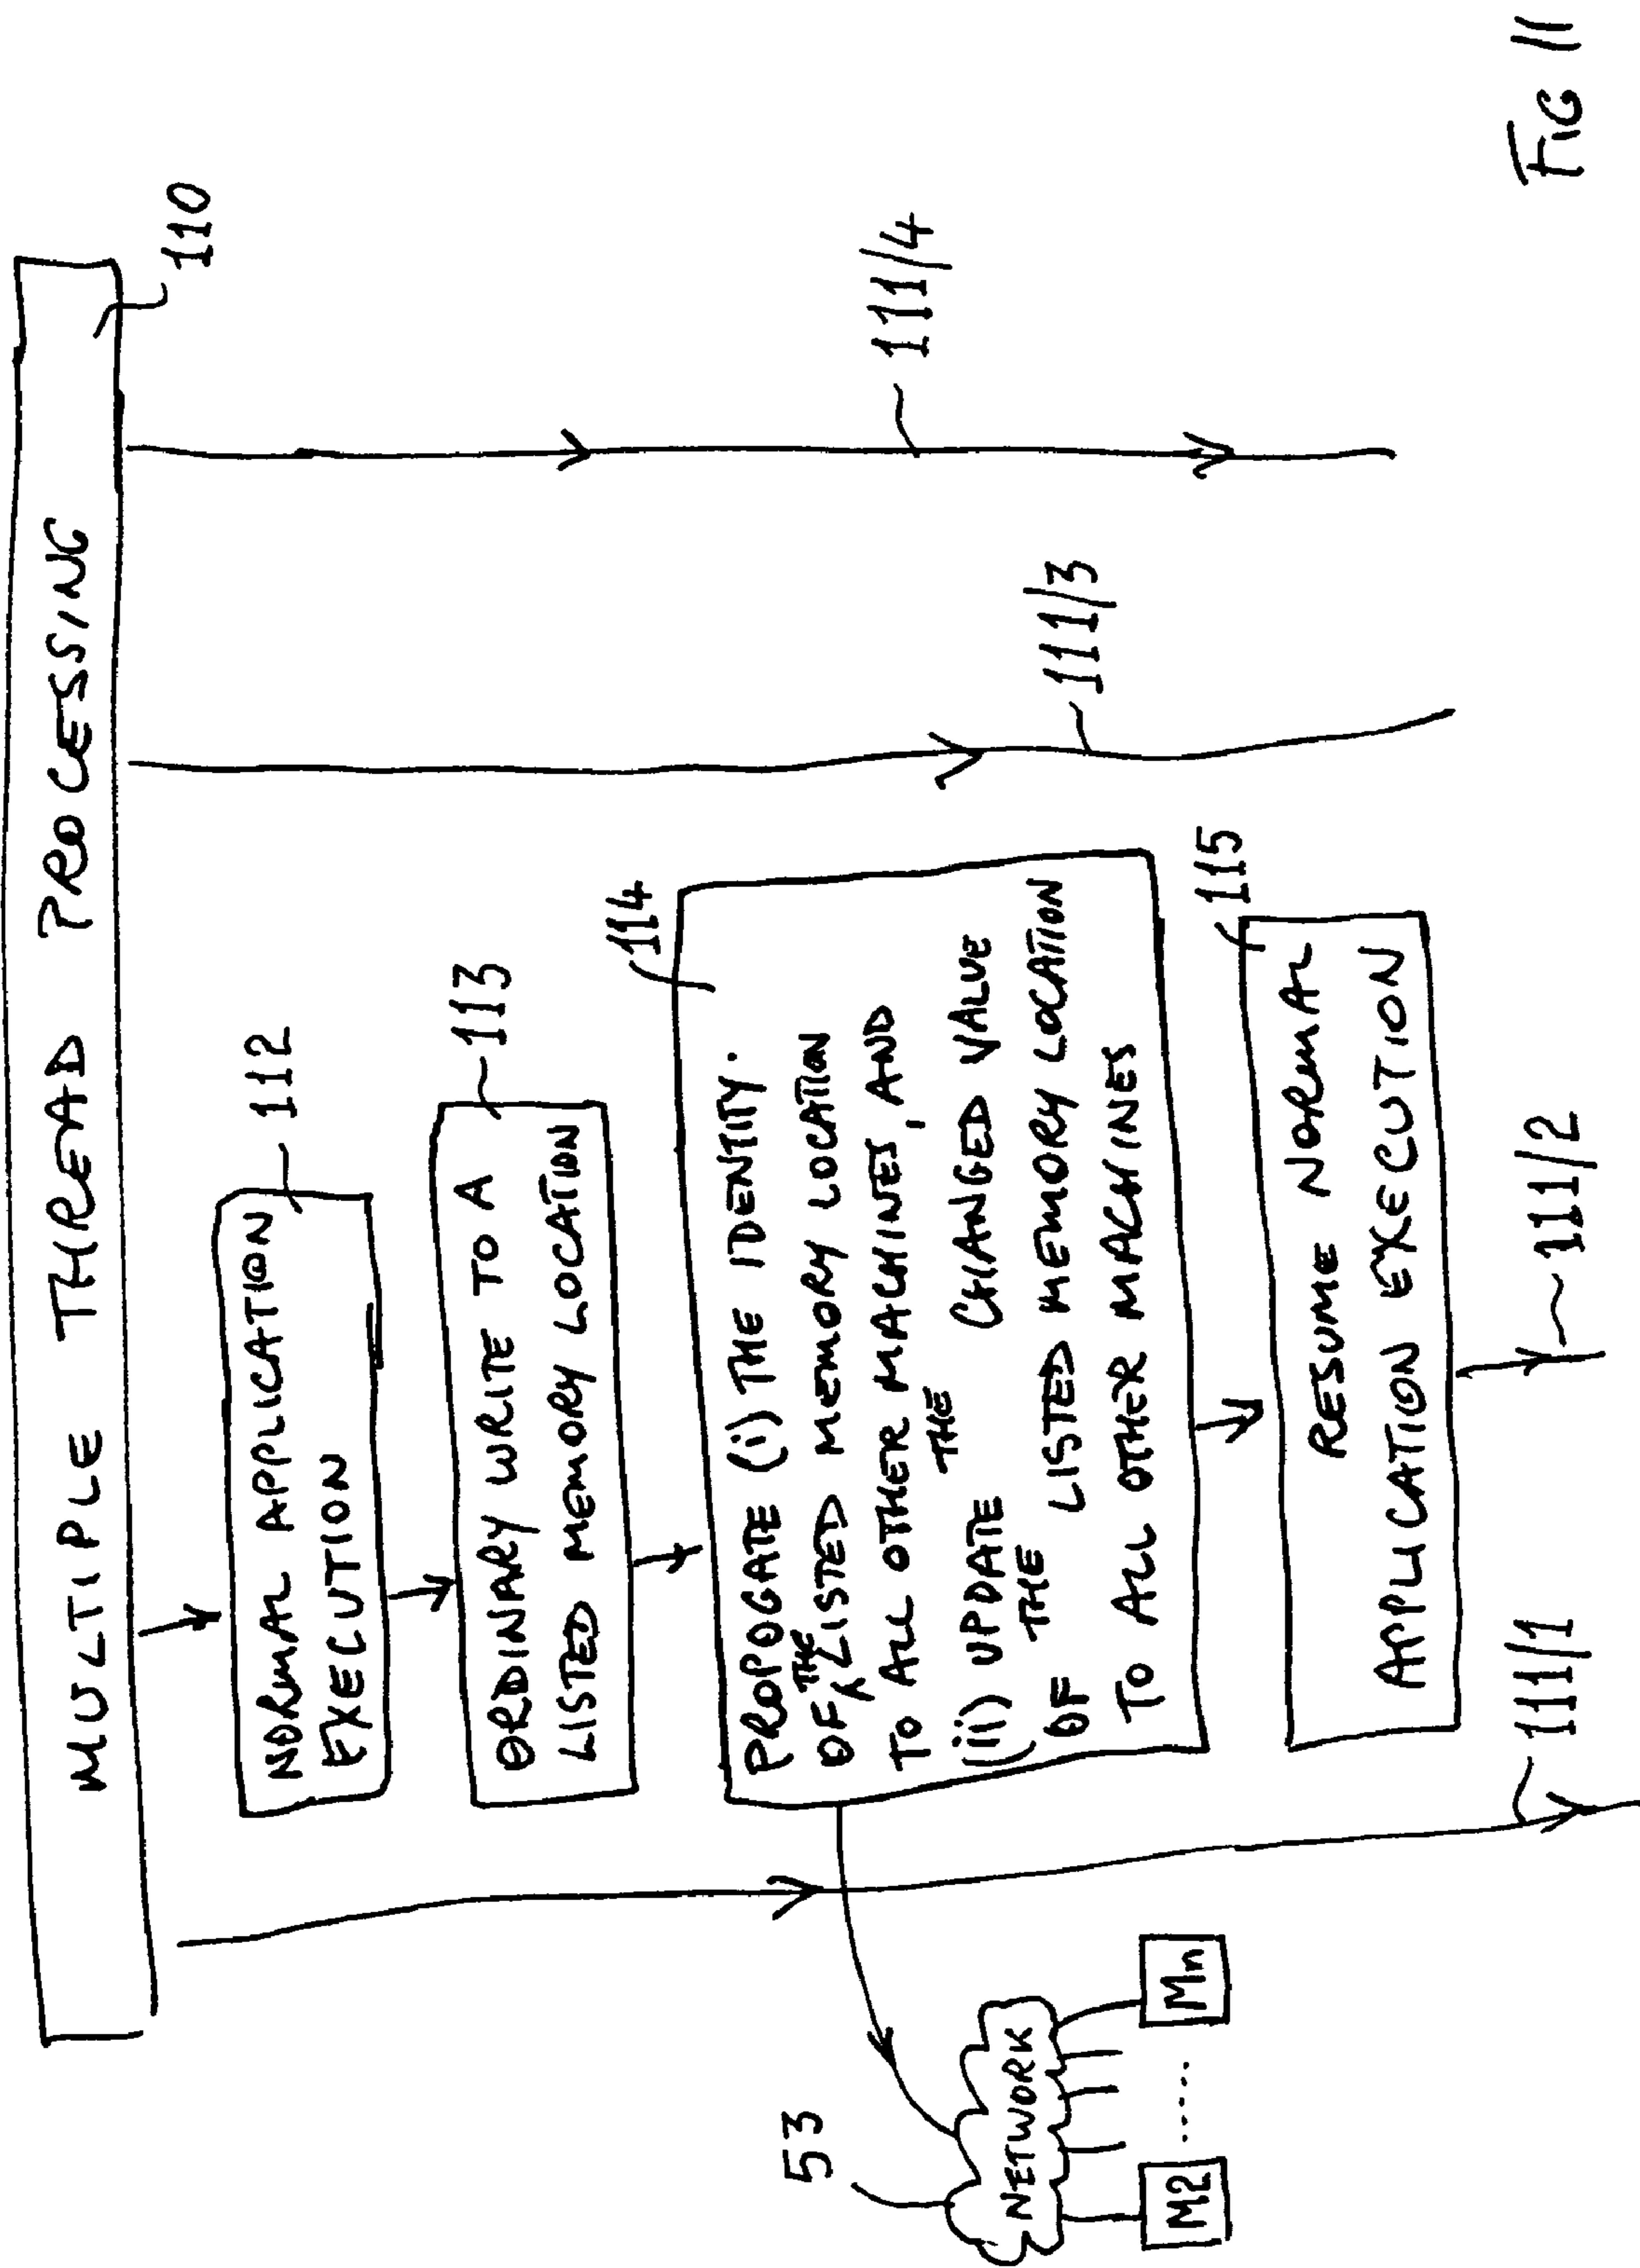 MULTIPLE THREAD PROCESSING
110
NORMAL APPLICATION
EXECUTION
112
ORDINARY WRITE TO A
LISTED MEMORY LOCATION
113
PROPOGATE (i) THE IDENTITY.
OF THE LISTED MEMORY LOCATION
TO ALL OTHER MACHINES, AND
(ii) UPDATE THE CHANGED VALUE
OF THE LISTED MEMORY LOCATION
TO ALL OTHER MACHINES
114
RESUME NORMAL
APPLICATION EXECUTION
115
111/1
111/2
111/3
111/4
53
NETWORK
M2 ...... Mn
FIG 11